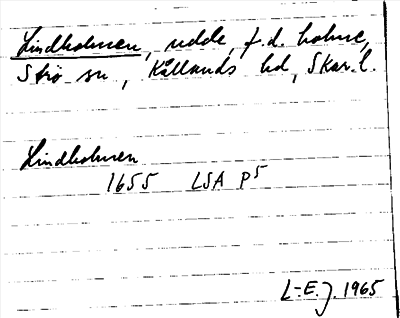 Lindholmen, udde, f.d. holme,
Strö sn, Kållands hd, Skar. l.
Lindholmen
1655 LSA P5
L-E. J. 1965